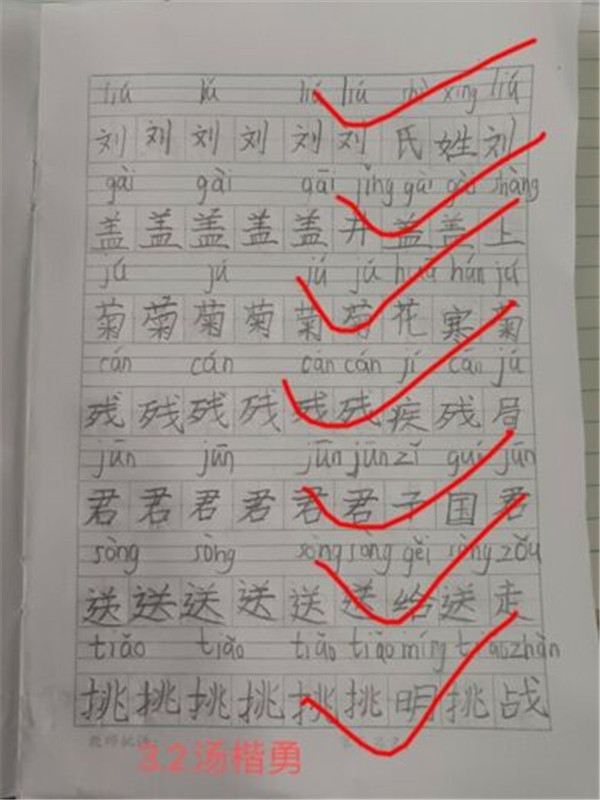 liú lú liú liú shì xìng liú
刘 刘 刘 刘 刘 刘 氏 姓 刘
gài gài gāi jǐng gài gài shàng
盖 盖 盖 盖 盖 井 盖 盖 上
jú jú jú jú huā hán jú
菊 菊 菊 菊 菊 菊 花 寒 菊
cán cán cán cán jí cán jú
残 残 残 残 残 残 疾 残 局
jūn jūn jūn jūn zǐ guó jūn
君 君 君 君 君 君 子 国 君
sòng sòng sòng sòng gěi sòng zǒu
送 送 送 送 送 送 给 送 走
tiǎo tiǎo tiǎo tiǎo míng tiǎo zhàn
挑 挑 挑 挑 挑 挑 明 挑 战
教师批语:
3.2汤楷勇